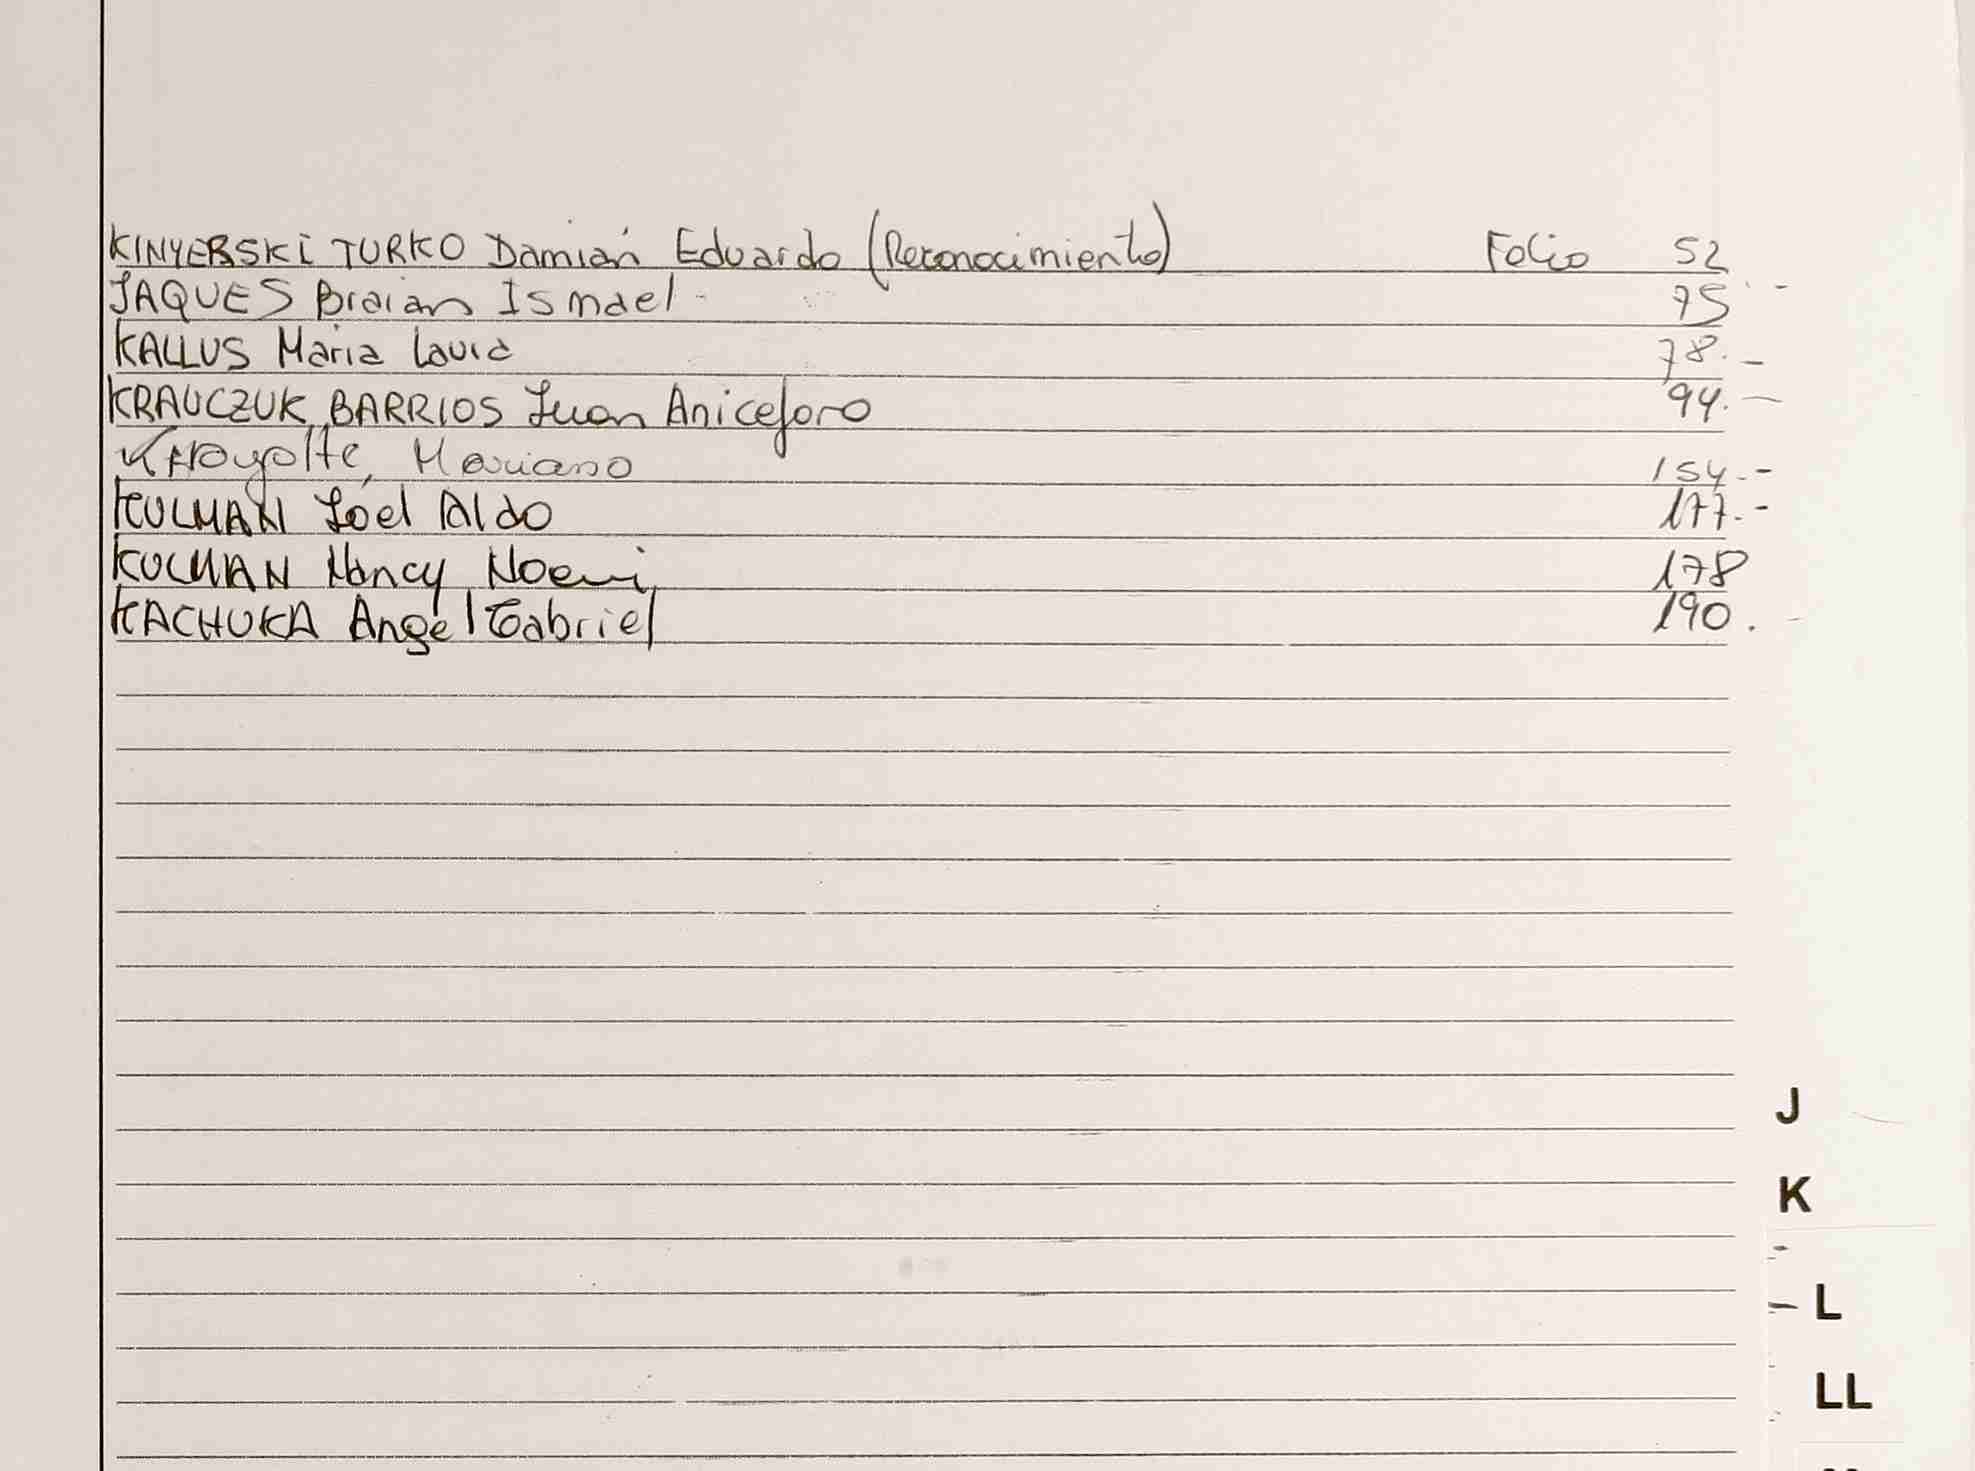 KINYERSKI TURKO Damián Eduardo (Reconocimiento) Folio 52
JAQUES Braian Ismael 75
KALLUS Maria Laura 78.-
KRAUCZUK BARRIOS Juan Aniceforo 94.-
Mariano 154.-
KULMAN Joel Aldo 177.-
KULMAN Nancy Noemi 178
KACHUKA Angel Gabriel 190.
J
K
L
LL